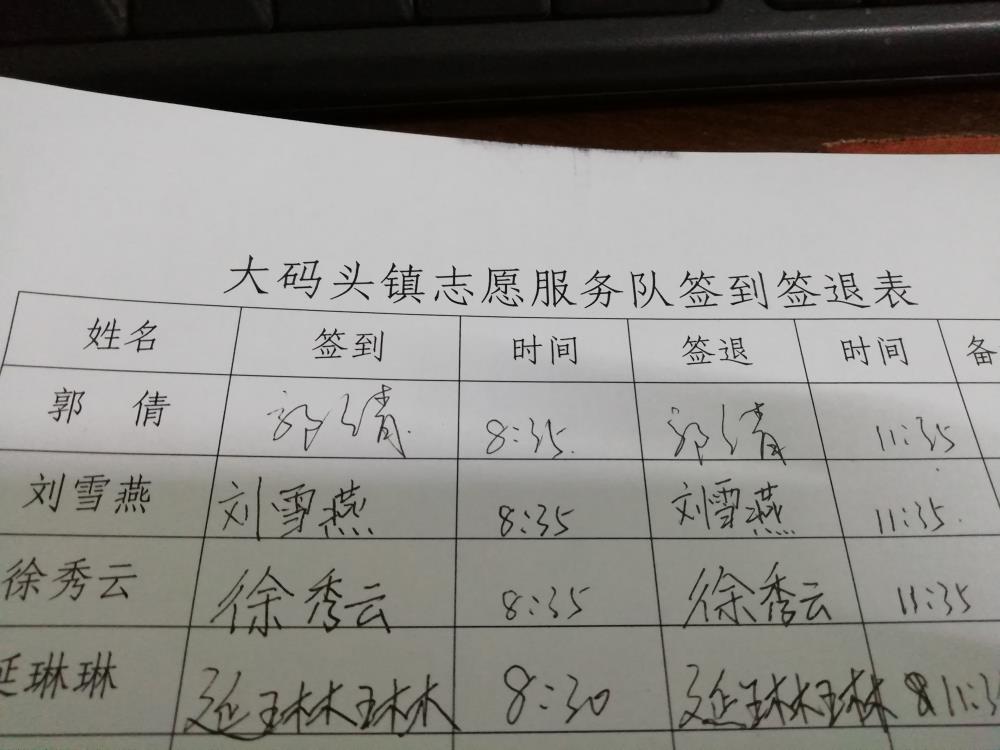 大码头镇志愿服务队签到签退表
姓名 签到 时间 签退 时间 备
郭倩 郭倩 8:35 郭倩 11:35
刘雪燕 刘雪燕 8:35 刘雪燕 11:35
徐秀云 徐秀云 8:35 徐秀云 11:35
延琳琳 延琳琳 8:30 延琳琳 11:3